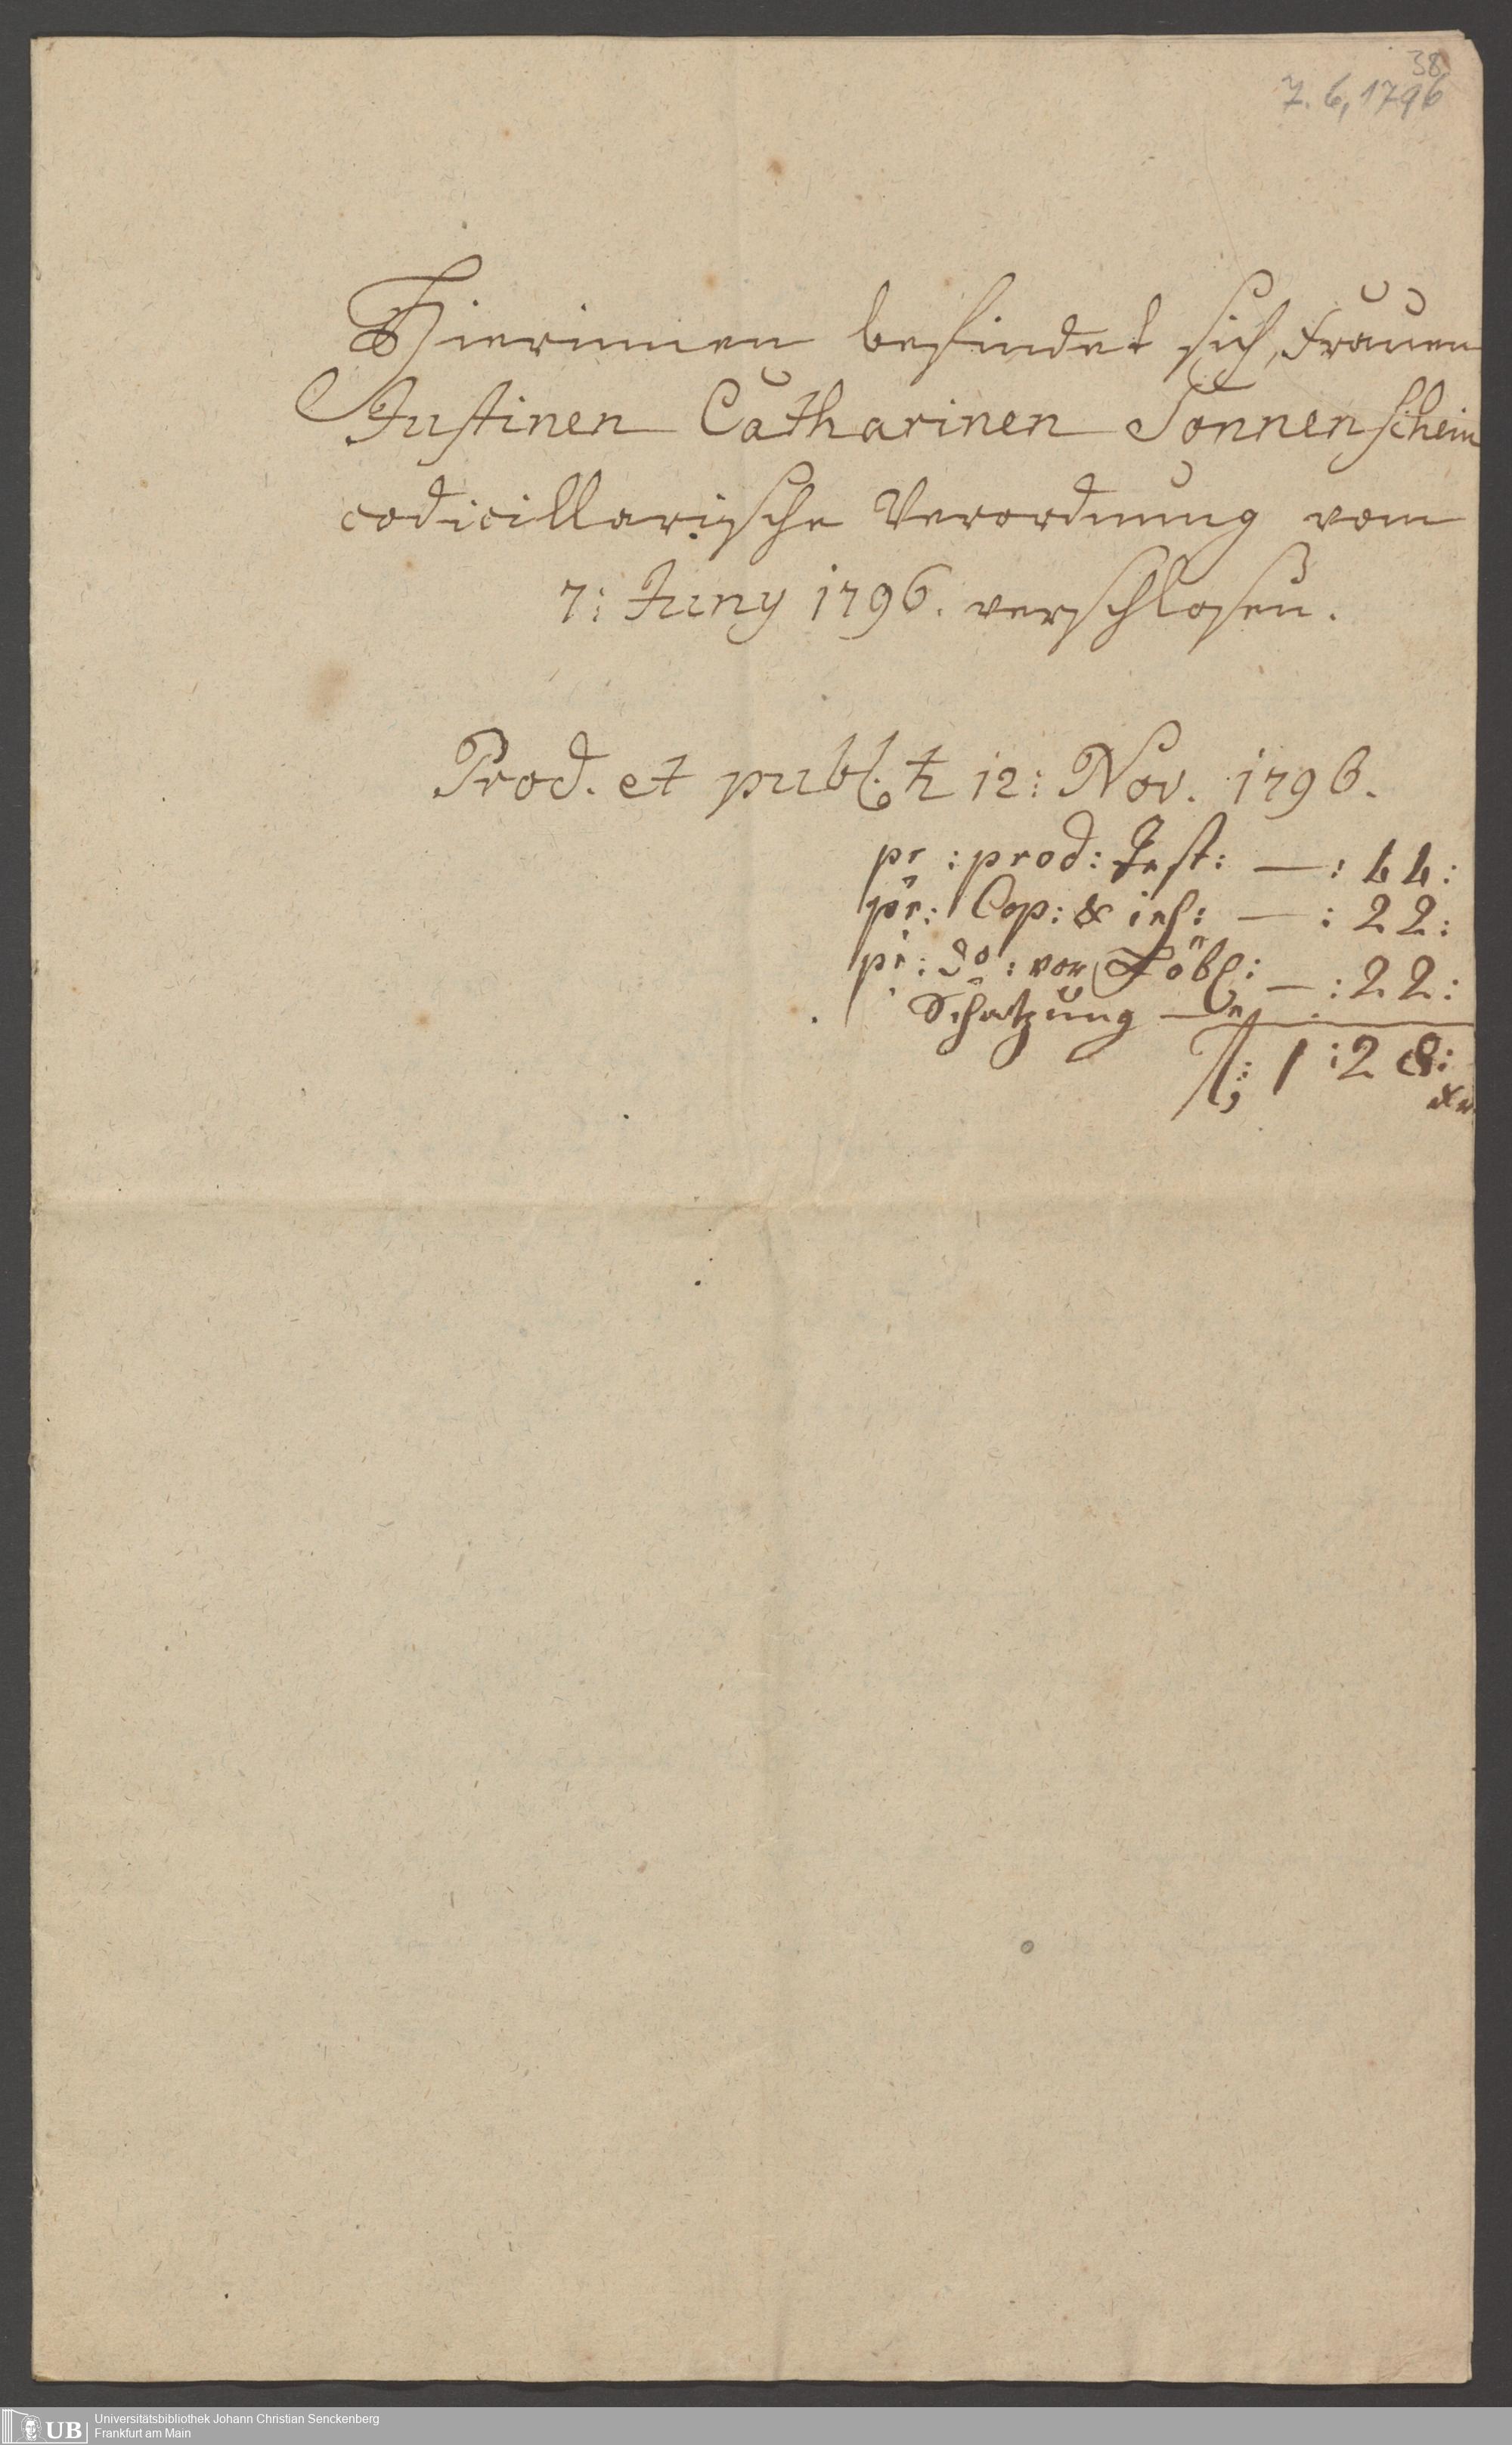 38
7. 6, 1796
Hierinnen befindet sich, Frauen
Justinen Catharinen Sonnenschein
codicillarische Verordnung vom
7: Juny 1796. verschlosen.
Prod. et publ. ♄ 12: Nov. 1796.
pr: prod: Test: — : 44:
pr: Cop: & ins: — : 22:
pr: do: vor Löbl: — : 22:
Schatzung —
f: 1: 28:
xr
Universitätsbibliothek Johann Christian Senckenberg
UB
Frankfurt am Main